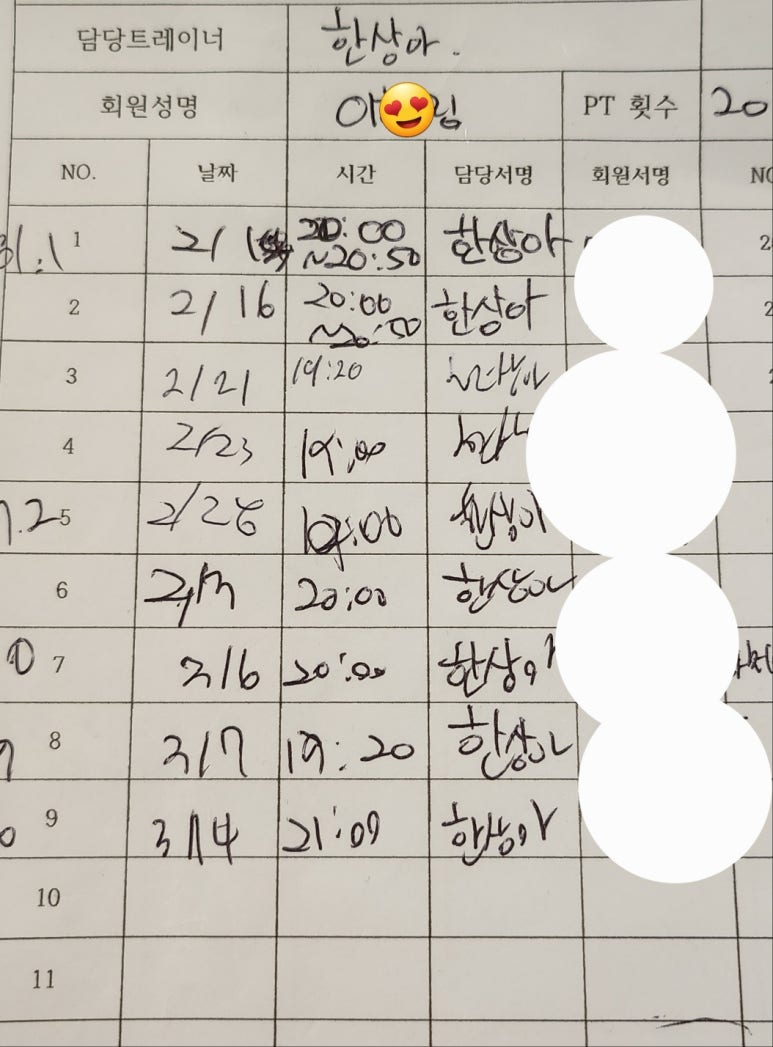 담당트레이너 한상아.
회원성명 PT 횟수 20
NO. 날짜 시간 담당서명 회원서명
1 20:00 한상아
~20:50
2 2/16 20:00 한상아
~20:50
3 2/21 19:20
4 2/23 19:00
5 한상아
6 20:00 한상아
7 3/6 20:00 한상아
8 3/7 19:20 한상아
9 3/14 21:00 한상아
10
11